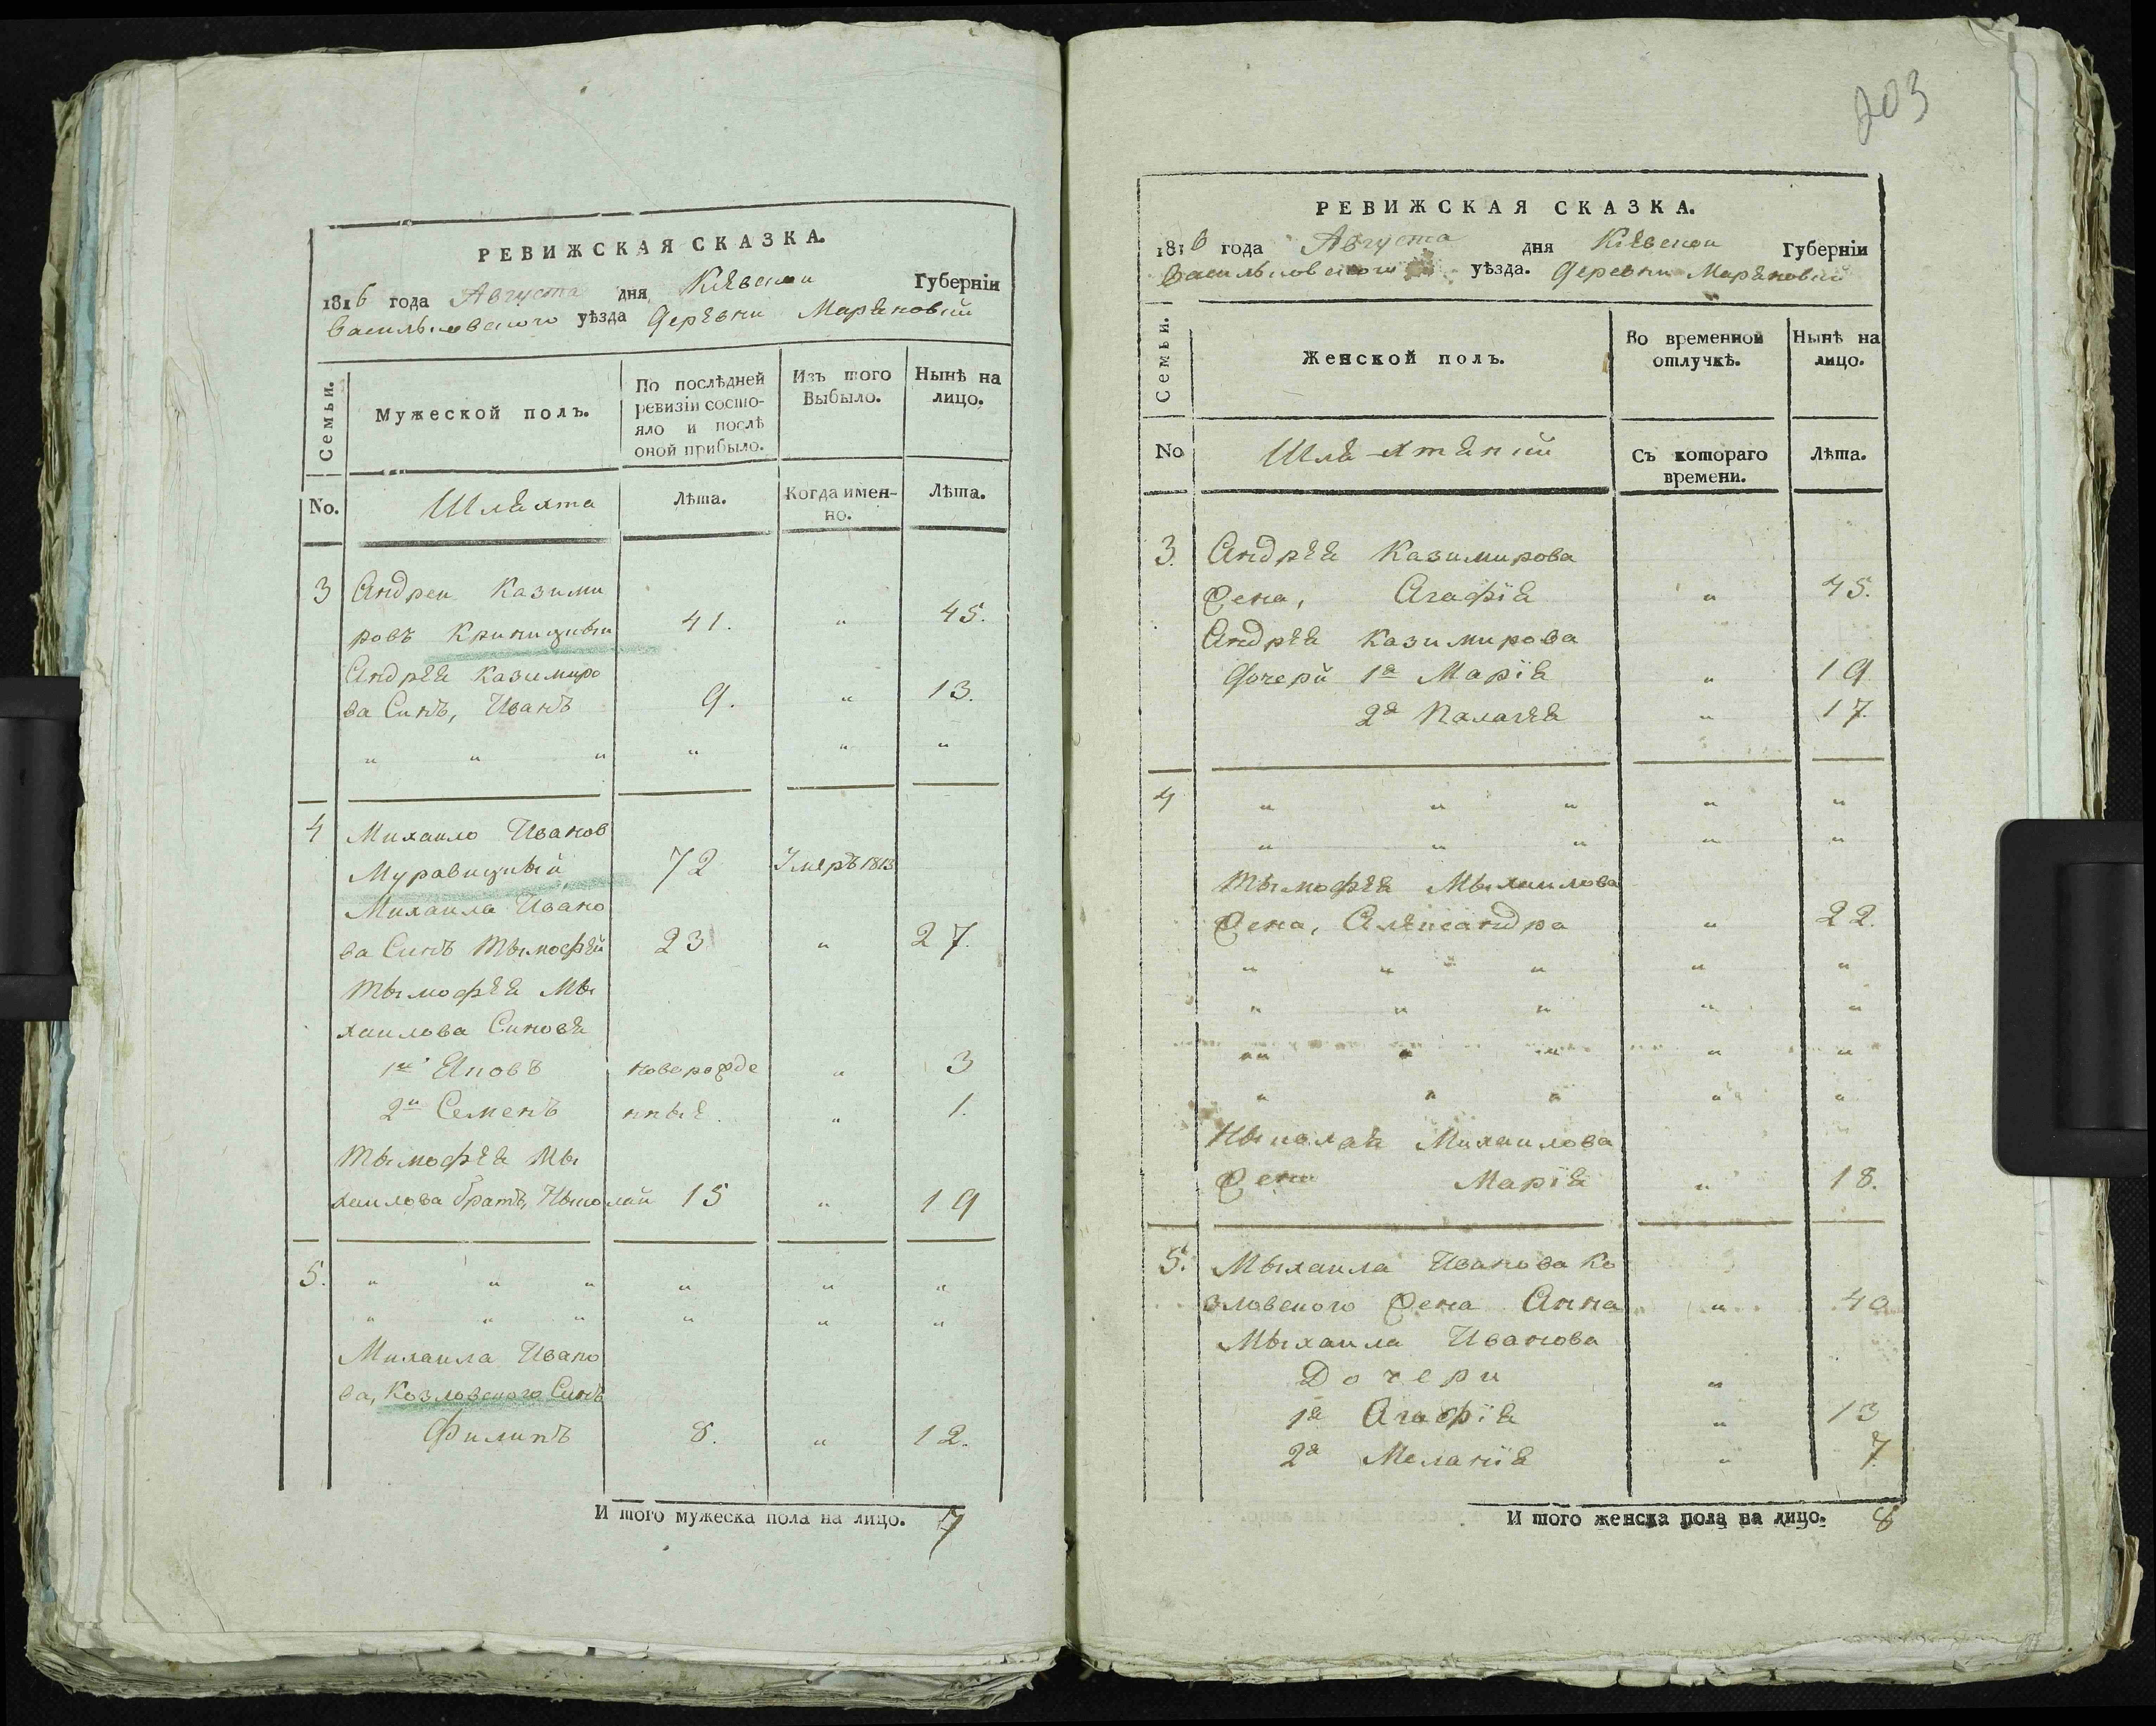 РЕВИЖСКАЯ СКАЗКА.
1816 года Августа дня Кіевской Губерніи
Васильковского уѣзда Деревни Маряновки
Семьи.
Мужеской полъ.
По послѣдней
ревизіи состо-
яло и послѣ
оной прибыло.
Изъ того
Выбыло.
Нынѣ на
лицо.
No.
Шляхта
Лѣта.
Когда имен-
но.
Лѣта.
3 Андреи Казими
ровъ Криницкыи 41. " 45.
Андрея Казимиро
ва Синъ, Иванъ 9. " 13.
" " " " " "
4 Михаило Иванов
Муравицкый 72 Умеръ 1813
Михаила Ивано
ва Синъ Тымофей 23 " 27.
Тымофея Мы
хаилова Синовя
1й Яковъ новорожде " 3
2й Семенъ нные. " 1.
Тымофея Мы
хаилова братъ, Ныколай 15 " 19
5. " " " " " "
" " " " " "
Михаила Ивано
ва, Козловского Синъ
Филипъ 8. " 12.
И того мужеска пола на лицо. 7
203
РЕВИЖСКАЯ СКАЗКА.
1816 года Августа дня Кіевской Губерніи
Васильковского уѣзда. Деревни Маряновки
Семьи.
Женской полъ.
Во временной
отлучкѣ.
Нынѣ на
лицо.
No
Шляхтянки
Съ котораго
времени.
Лѣта.
3. Андрея Казимирова
Жена, Агафія " 45.
Андрея Казимирова
Дочери 1я Марія " 19
2я Палагея " 17.
4 " " " " "
" " " " "
Тымофея Мыхаилова
Жена, Александра " 22.
" " " " "
" " " " "
" " " " "
" " " " "
Ныколая Михаилова
Жена Марія " 18.
5. Мыхаила Иванова Ко
зловского Жена Анна " 40
Мыхаила Иванова
Дочери "
1я Агафія " 13
2я Меланія " 7.
И того женска пола на лицо. 8